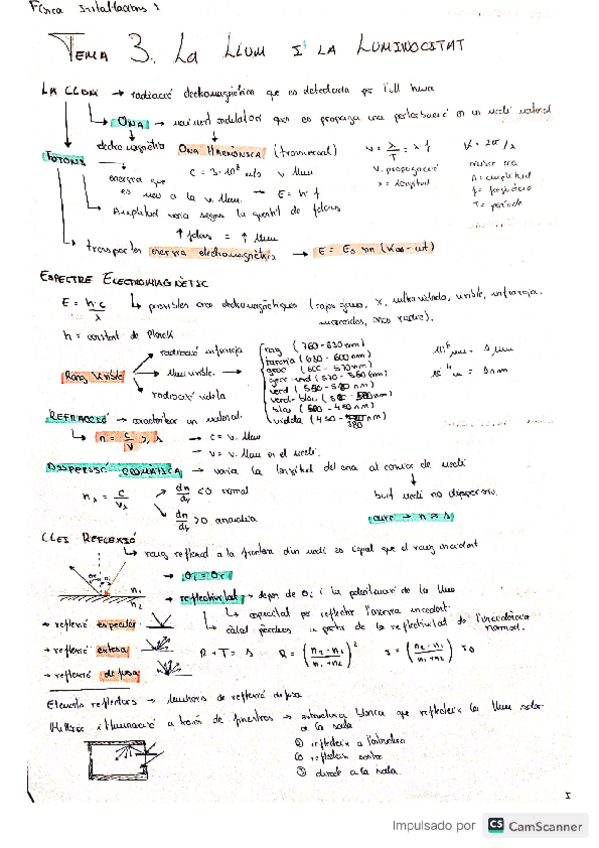 Física Instal·lacions 1
TEMA 3. LA LLUM I LA LUMINOCITAT
LA LLUM → radiació electromagnètica que es detectada per l'ull humà
ONA → moviment ondulatori que es propaga una perturbació en un medi material
electromagnètica ONA HARMÒNICA (transversal) v = λ/T = λ·f K = 2π/λ
FOTONS
c = 3·10⁸ m/s v. llum v. propagació
energia que es mou a la v. llum → E = h·f λ = longitud
A = amplitud
f = freqüència
T = període
Amplitud varia segons la quantitat de fotons
↑ fotons = ↑ llum
transporten energia electromagnètica → E = E₀ sin (Kx - wt)
ESPECTRE ELECTROMAGNÈTIC
E = h·c/λ → possibles ones electromagnètiques (rajos gamma, X, ultraviolada, visible, infraroja,
microones, ones radio).
h = constant de Planck
Rang Visible
radiació infraroja
llum visible →
radiació violada
roig (780 - 630 nm)
taronja (630 - 600 nm)
groc (600 - 570 nm)
groc-verd (570 - 550 nm)
verd (550 - 520 nm)
verd-blau (520 - 500 nm)
blau (500 - 450 nm)
violeta (450 - 380 nm)
REFRACCIÓ → caracteritzar un material.
n = c/v ≥ 1 → c = v. llum
→ v = v. llum en el medi.
DISPERSIÓ CROMÀTICA → varia la longitud del ona al canviar de medi
n_λ = c/v_λ → dn/dλ < 0 normal buit medi no dispersiu.
dn/dλ > 0 anomalia aire → n ≈ 1
LLEI REFLEXIÓ
raig reflexat a la frontera d'un medi es igual que el raig incident
θi = θr
n₁
n₂
reflectivitat → depen de θi i la polarització de la llum
capacitat per reflectir l'energia incident.
càlcul pèrdues a partir de la reflectivitat de l'incidència normal.
→ reflexió especular
→ reflexió extensa R + T = 1 R = (n₂ - n₁ / n₁ + n₂)²
→ reflexió difusa
Elements reflectors → lluminàries de reflexió difusa
Millorar il·luminació a través de finestres → estructura blanca que reflecteix la llum solar
a la sala
① reflecteix a l'estructura
② reflecteix sostre
③ directe a la sala.
1
Impulsado por CS CamScanner